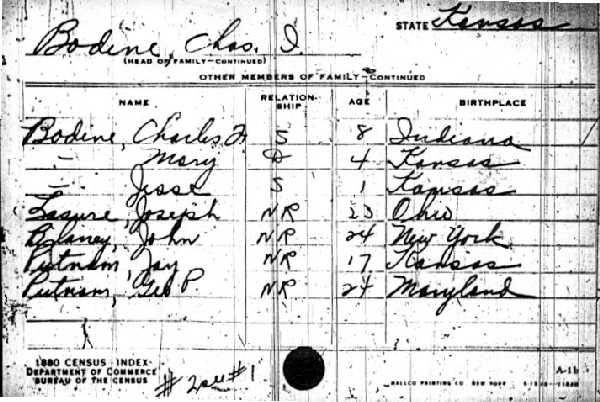 STATE Kansas
Bodine, Chas. I.
(HEAD OF FAMILY—CONTINUED)
OTHER MEMBERS OF FAMILY—CONTINUED
NAME RELATION-SHIP AGE BIRTHPLACE
Bodine, Charles S 8 Indiana
— Mary D 4 Kansas
— Jesse S 1 Kansas
Lasure, Joseph NR 23 Ohio
Blaney, John NR 24 New York
Putnam, Jay NR 17 Kansas
Putnam, Geo P NR 24 Maryland
1880 CENSUS—INDEX
DEPARTMENT OF COMMERCE
BUREAU OF THE CENSUS
# 2 see #1
A-1b
PRINTING CO NEW YORK